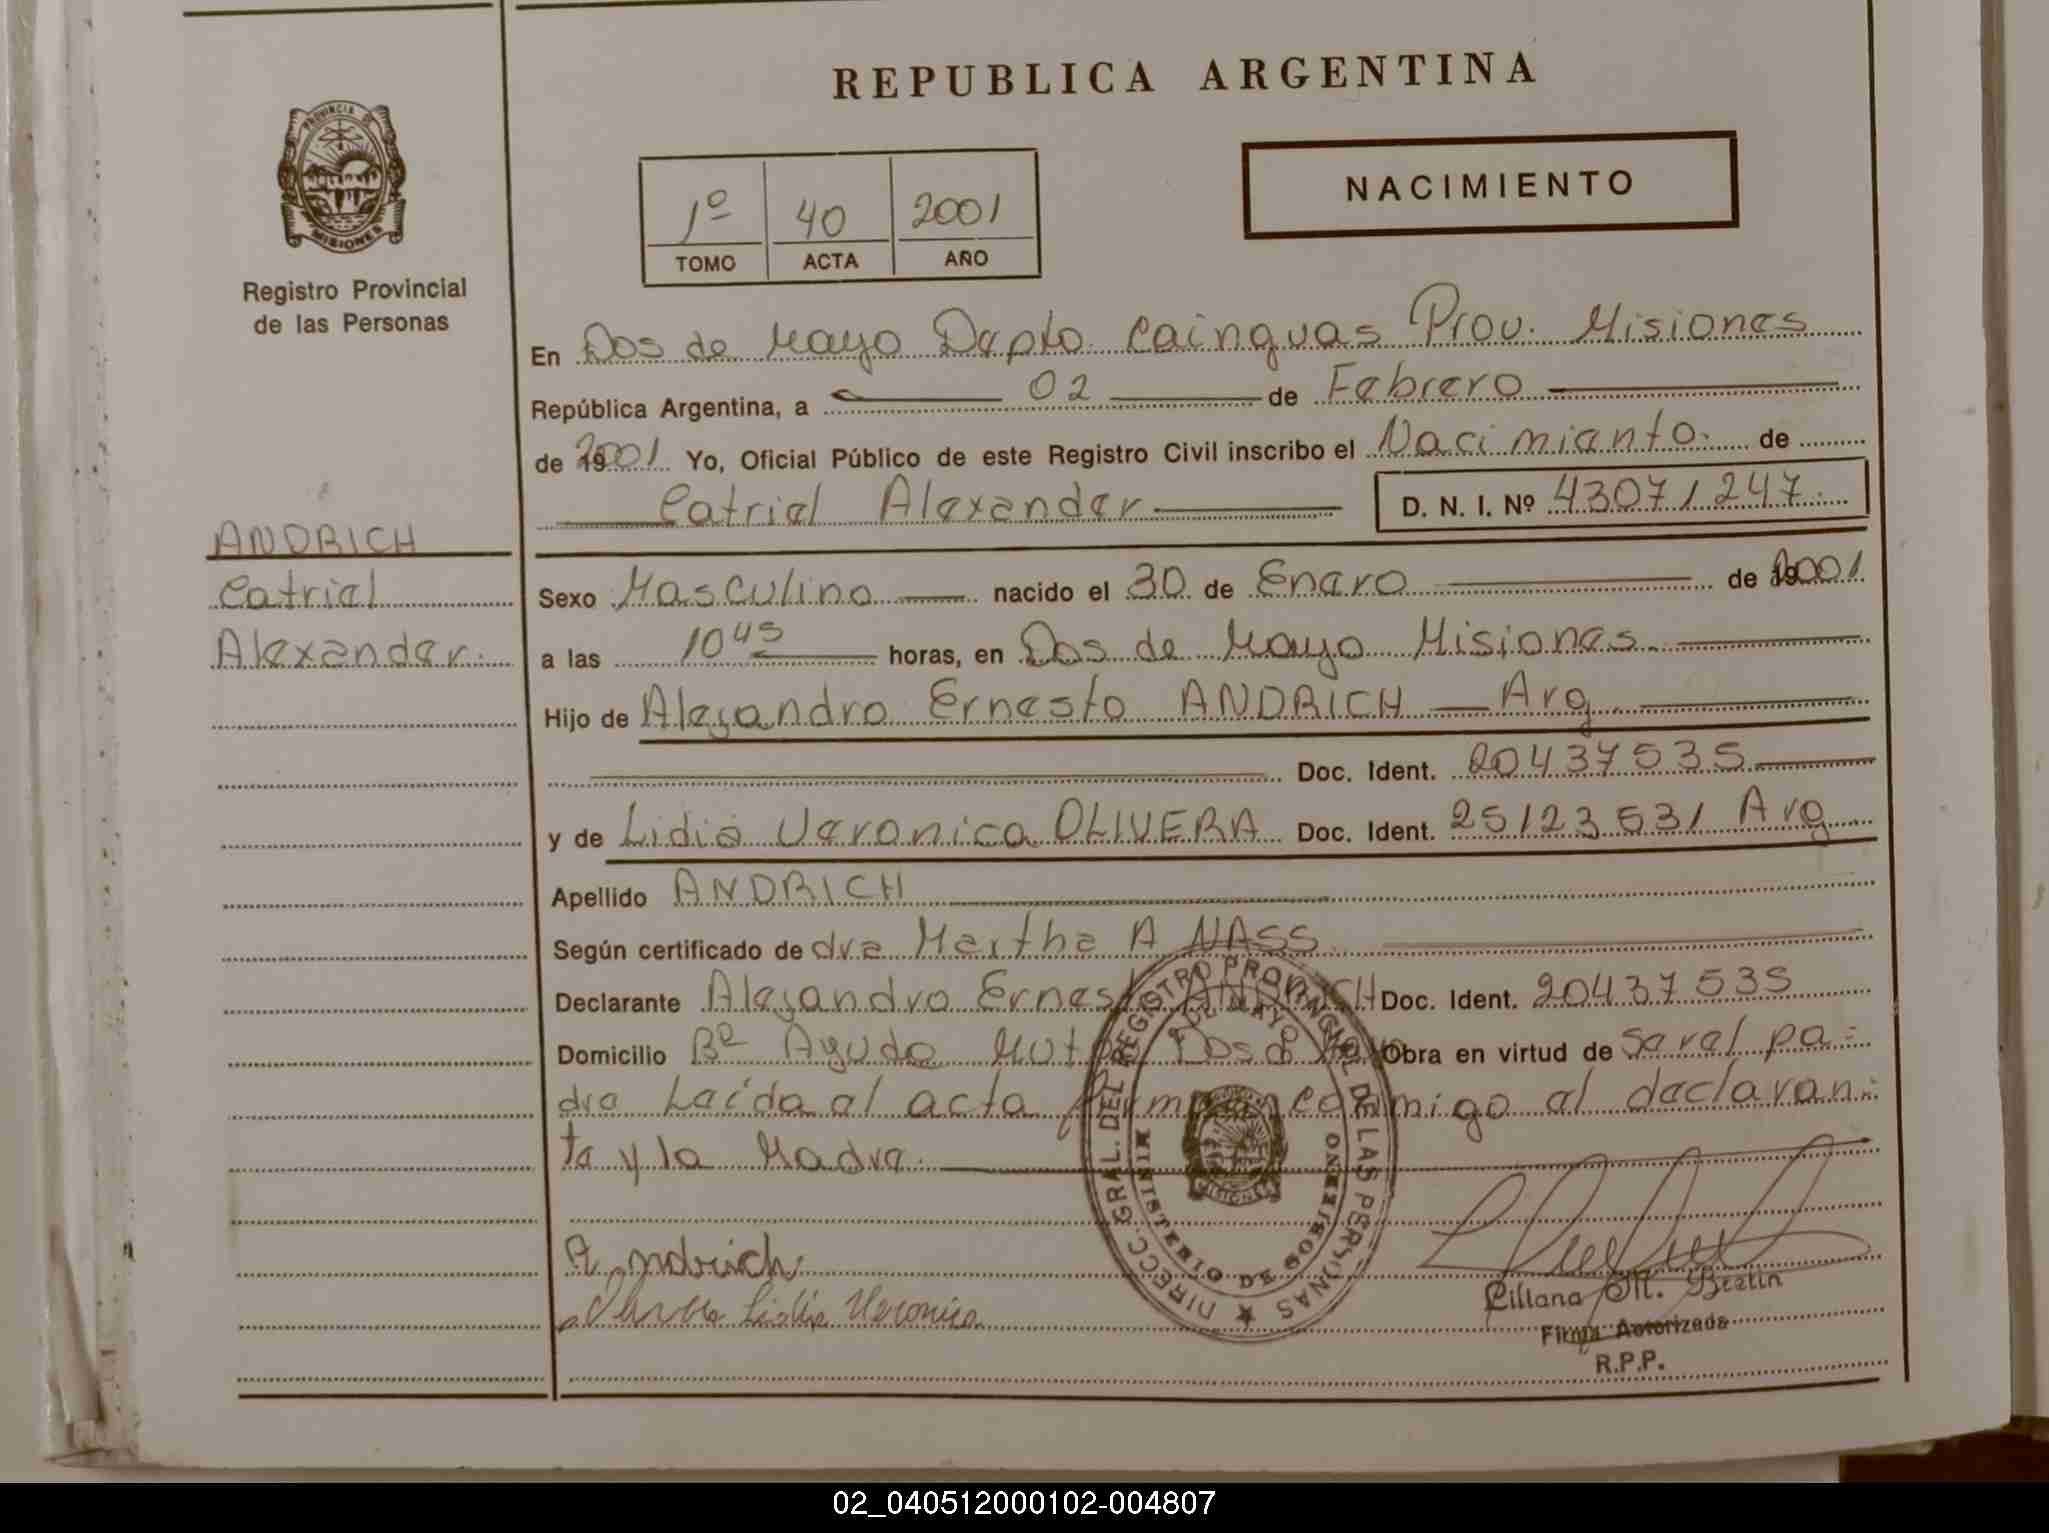 REPUBLICA ARGENTINA
PROVINCIA DE
MISIONES
Registro Provincial
de las Personas
1º 40 2001
TOMO ACTA AÑO
NACIMIENTO
En Dos de Mayo Depto. Cainguas Prov. Misiones
República Argentina, a 02 de Febrero
de 2001 Yo, Oficial Público de este Registro Civil inscribo el Nacimiento de
Catriel Alexander D. N. I. Nº 43071247
ANDRICH
Catriel
Alexander.
Sexo Masculino nacido el 30 de Enero de 2001
a las 10 45 horas, en Dos de Mayo Misiones.
Hijo de Alejandro Ernesto ANDRICH Arg
Doc. Ident. 20437535
y de Lidia Veronica OLIVERA Doc. Ident. 25123531 Arg
Apellido ANDRICH
Según certificado de dra Martha A NASS
Declarante Alejandro Ernesto ANDRICH Doc. Ident. 20437535
Domicilio Bº Ayuda Mutua Dos de Mayo Obra en virtud de ser el pa=
dre Leída el acta firman conmigo el declaran=
te y la Madre.
DIRECC. GRAL. DEL REGISTRO PROVINCIAL DE LAS PERSONAS
MINISTERIO DE GOBIERNO
DOS DE MAYO
MISIONES
Andrich
Olivera Lidia Veronica
Liliana M. Bratin
Firma Autorizada
R.P.P.
02_040512000102-004807